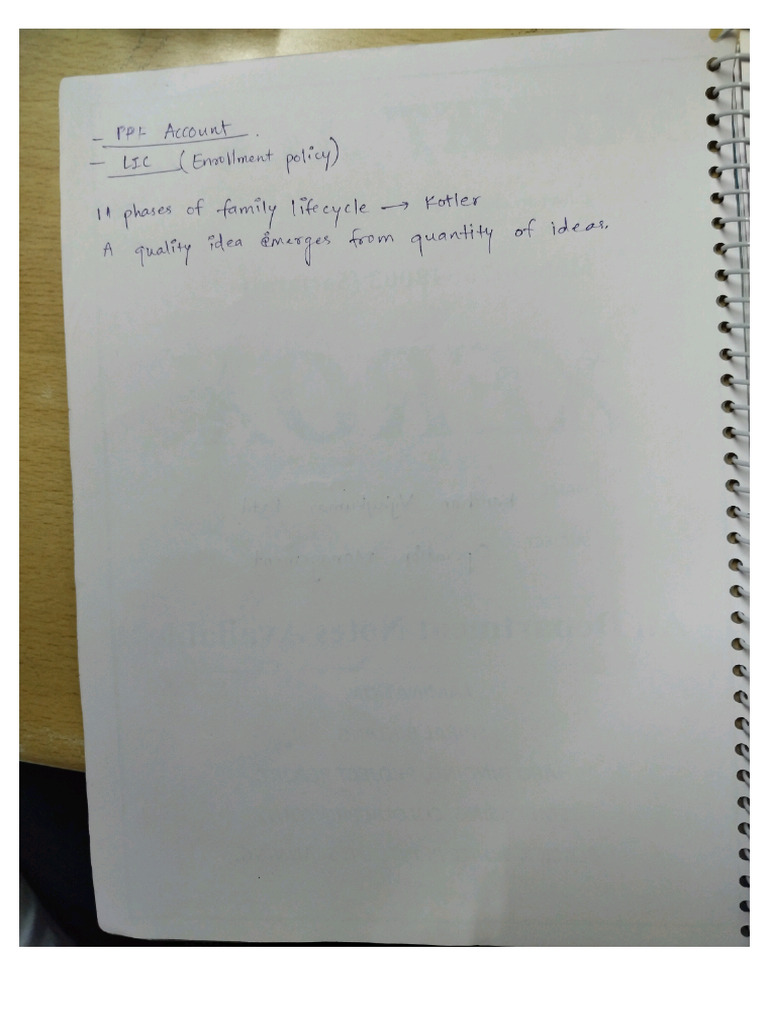 - PPF Account.
- LIC (Enrollment policy)
11 phases of family lifecycle → Kotler
A quality idea emerges from quantity of ideas.